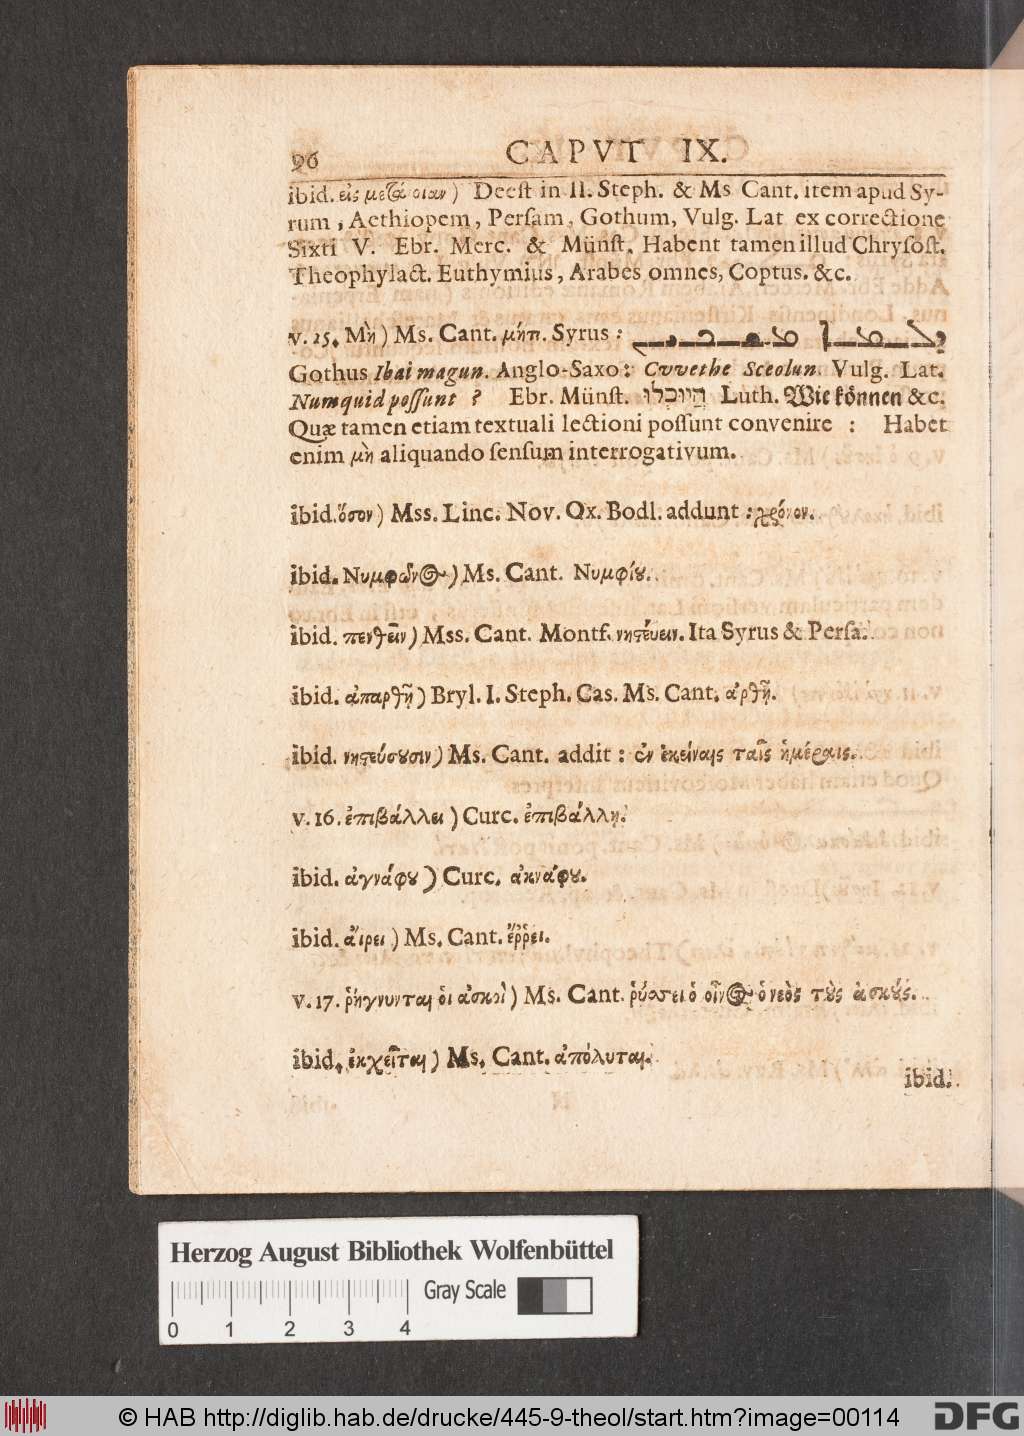 96 CAPVT IX.
ibid. εἰς μετάνοιαν) Deeſt in 11. Steph. & Ms Cant. item apud Sy-
rum, Aethiopem, Perſam, Gothum, Vulg. Lat ex correctione
Sixti V. Ebr. Merc. & Münſt. Habent tamen illud Chryſoſt.
Theophylact. Euthymius, Arabes omnes, Coptus. &c.
v. 15. Μὴ) Ms. Cant. μήτι. Syrus:
Gothus Ibai magun. Anglo-Saxo: Cvvethe Sceolun. Vulg. Lat.
Numquid poſſunt? Ebr. Münſt. הֲיוּכְלוּ Luth. Wie können &c.
Quæ tamen etiam textuali lectioni poſſunt convenire: Habet
enim μὴ aliquando ſenſum interrogativum.
ibid. ὅσον) Mss. Linc. Nov. Ox. Bodl. addunt: χρόνον.
ibid. Νυμφῶνος) Ms. Cant. Νυμφίου.
ibid. πενθεῖν) Mss. Cant. Montf. νηστεύειν. Ita Syrus & Perſa.
ibid. ἀπαρθῇ) Bryl. I. Steph. Cas. Ms. Cant. ἀρθῇ.
ibid. νηστεύσουσιν) Ms. Cant. addit: ἐν ἐκείναις ταῖς ἡμέραις.
v. 16. ἐπιβάλλει) Curc. ἐπιβάλλῃ.
ibid. ἀγνάφου) Curc. ἀκνάφου.
ibid. ἄιρει) Ms. Cant. ἔῤῥει.
v. 17. ῥήγνυνται ὁι ἀσκοὶ) Ms. Cant. ῥήσσει ὁ οἶνος ὁ νεὸς τοὺς ἀσκούς.
ibid. ἐκχεῖται) Ms. Cant. ἀπόλυται.
ibid.
Herzog August Bibliothek Wolfenbüttel
Gray Scale
0 1 2 3 4
© HAB http://diglib.hab.de/drucke/445-9-theol/start.htm?image=00114
DFG